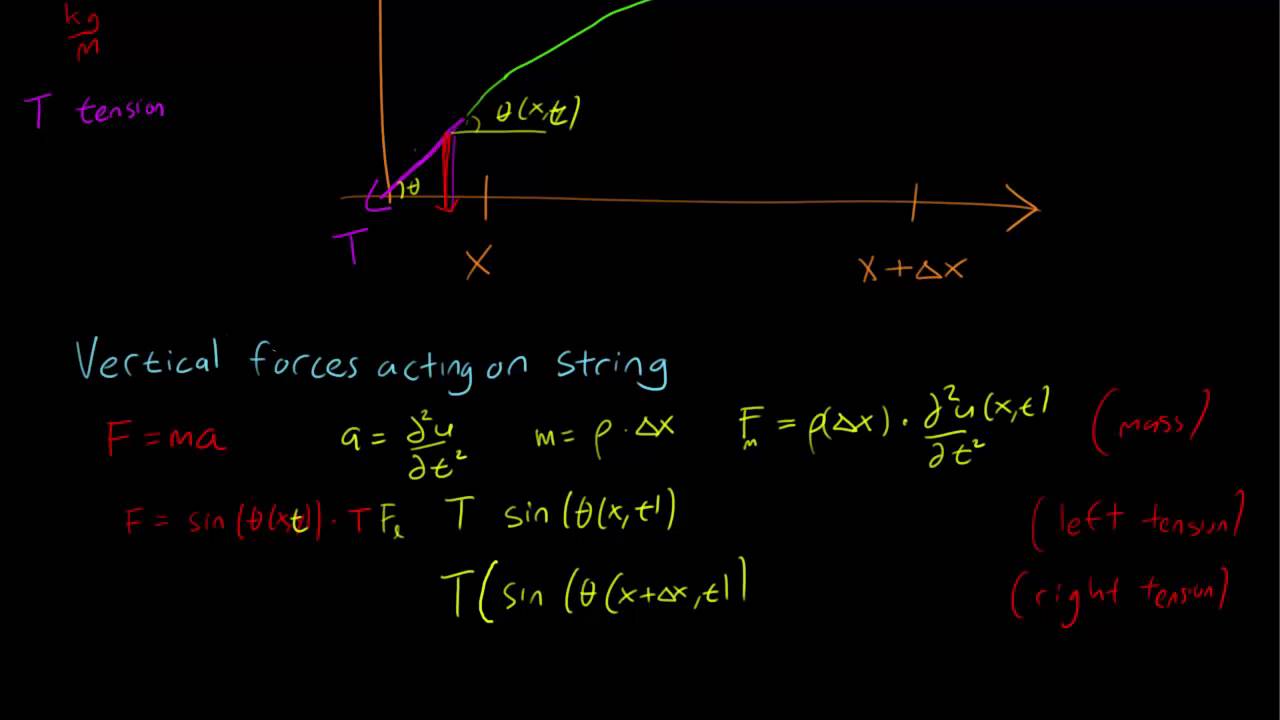 kg
m
T tension
θ(x,t)
θ
T
x
x+Δx
Vertical forces acting on string
F = ma a = ∂²u/∂t² m = ρ · Δx F_m = ρ(Δx) · ∂²u(x,t)/∂t² (mass)
F = sin(θ(x,t)) · T F_l T sin(θ(x,t) (left tension)
T(sin(θ(x+Δx,t) (right tension)